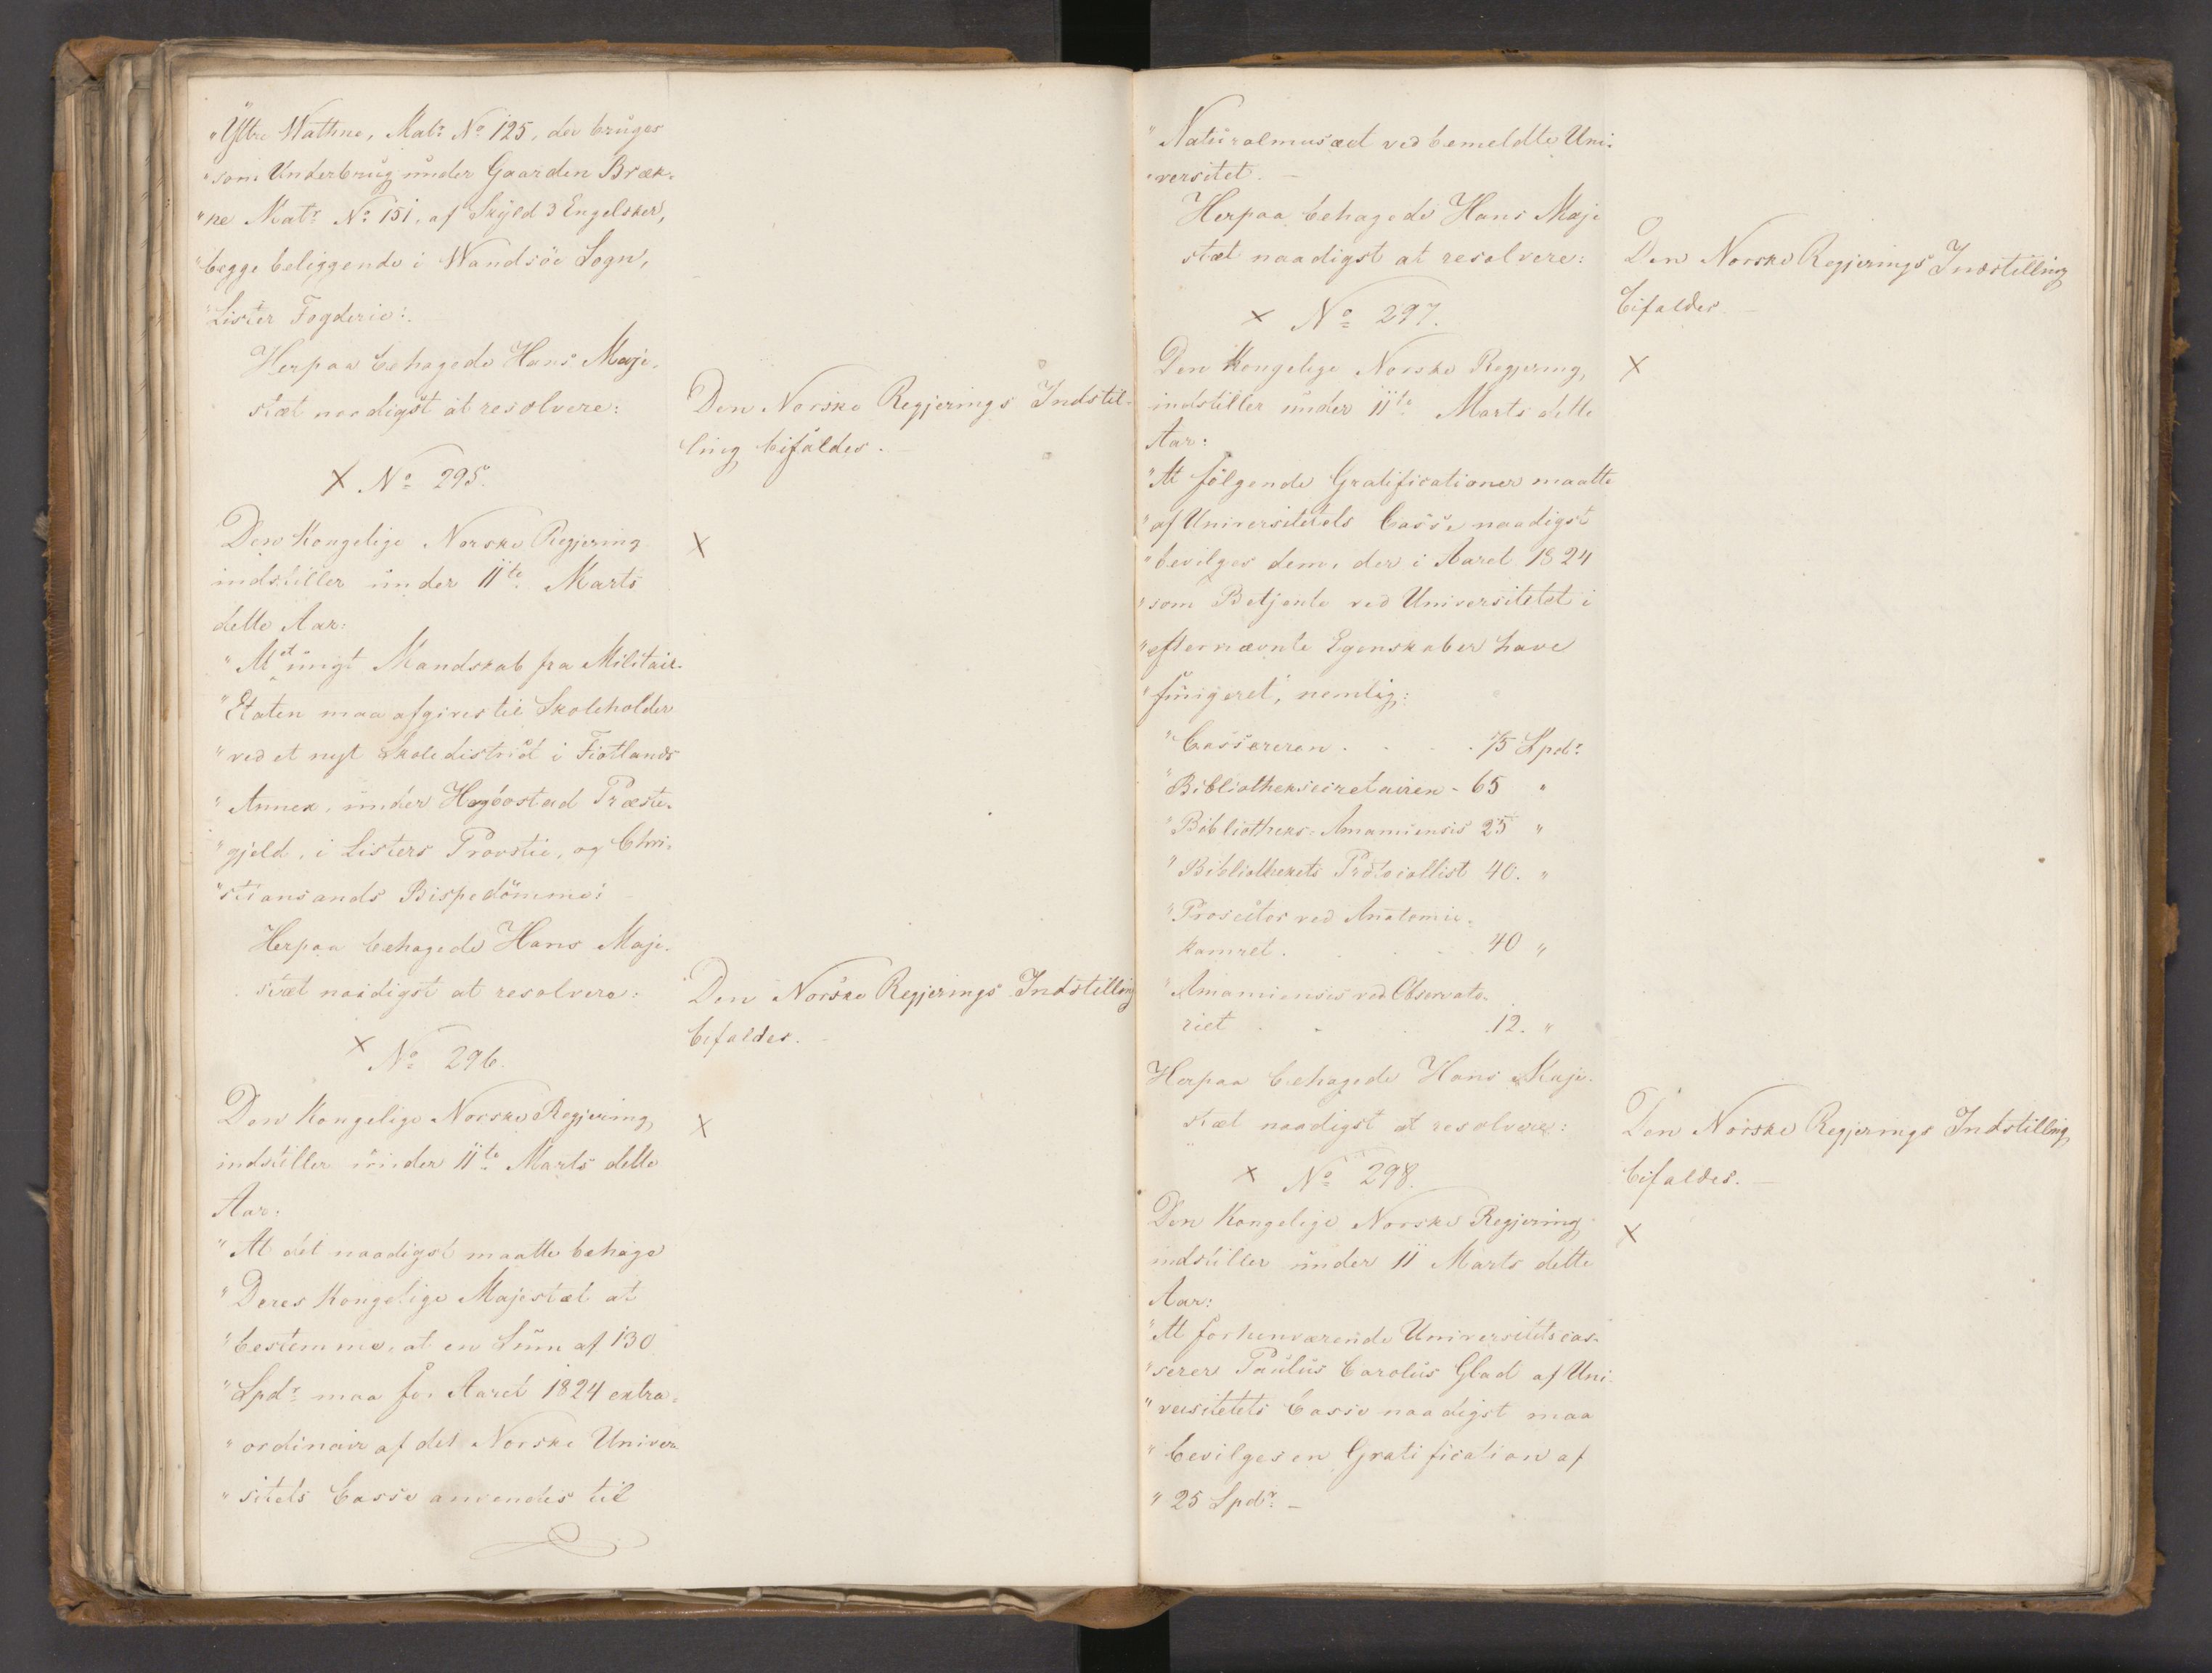 "Ÿttre Wathne, Matr. No 125, der brŭges
"som Underbrŭg ŭnder Gaarden Bræk-
"ne Matr No 151, af Skÿld 3 Engelsker,
"begge beliggende i Wandsöe Sogn,
"Lister Fogderie:
Herpaa behagede Hans Maje-
stæt naadigst at resolvere:
Den Norske Regjerings Indstil-
ling bifaldes.
X No 295.
Den Kongelige Norske Regjering
indstiller ŭnder 11te Marts
dette Aar:
X
"At et ŭngt Mandskab fra Militair-
"Etaten maa afgives til Skoleholder
"ved et nyt Skoledistrict i Fiotlands
"Annex, ŭnder Hægebostad Præste-
"gjeld, i Listers Provstie, og Chri-
"stiansands Bispedömme:
Herpaa behagede Hans Maje-
stæt naadigst at resolvere:
Den Norske Regjerings Indstilling
bifaldes.
X No 296.
Den Kongelige Norske Regjering
indstiller ŭnder 11te Marts dette
Aar:
X
"At det naadigst maatte behage
"Deres Kongelige Majestæt at
"bestemme, at en Sŭm af 130
"Spdr maa for Aaret 1824 extra-
"ordinair af det Norske Univer-
"sitets Casse anvendes til
"Natŭralmusæet ved bemeldte Uni-
"versitet. –
Herpaa behagede Hans Maje
stæt naadigst at resolvere:
Den Norske Regjerings Indstilling
bifaldes. –
X No 297.
Den Kongelige Norske Regjering,
indstiller ŭnder 11te Marts dette
Aar:
X
"At følgende Gratificationer maatte
"af Universitetets Casse naadigst
"bevilges dem, der i Aaret 1824
"som Betjente ved Universitetet i
"efternævnte Egenskaber have
"fŭngeret, nemlig:
"Cassereren . . . . 75 Spdr
"Bibliotheksecretairen - 65 "
"Bibliotheks-Amamiensis 25 "
"Bibliothekets Protocollist 40. "
"Prosector ved Anatomie-
kamret . . . . 40 "
"Amamiensis ved Observato-
riet . . . . 12. "
Herpaa behagede Hans Maje-
stæt naadigst at resolvere:
Den Norske Regjerings Indstilling
bifaldes. –
X No 298.
Den Kongelige Norske Regjering
indstiller ŭnder 11 Marts dette
Aar:
X
"At forhenværende Universitetscas-
"serer Paŭlŭs Carolŭs Glad af Uni-
"versitetets Casse naadigst maa
"bevilges en Gratification af
"25 Spdr. –